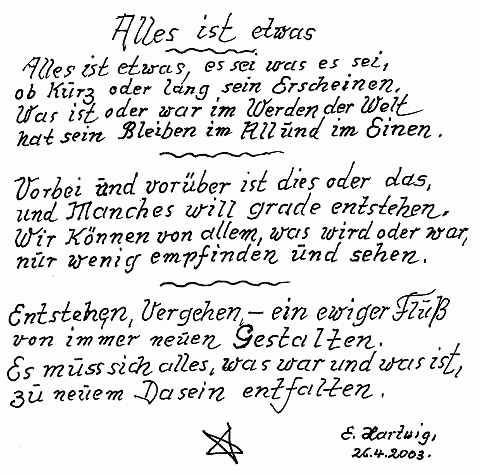 Alles ist etwas
Alles ist etwas, es sei was es sei,
ob kurz oder lang sein Erscheinen.
Was ist oder war im Werden der Welt
hat sein Bleiben im All und im Einen.
Vorbei und vorüber ist dies oder das,
und Manches will grade entstehen.
Wir können von allem, was wird oder war,
nur wenig empfinden und sehen.
Entstehen, Vergehen, – ein ewiger Fluß
von immer neuen Gestalten.
Es muss sich alles, was war und was ist,
zu neuem Dasein entfalten.
E. Hartwig,
26.4.2003.